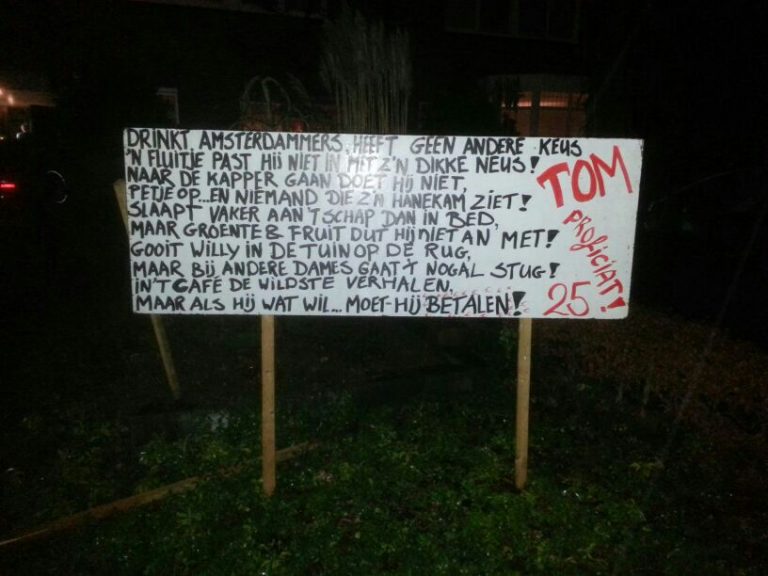 DRINKT AMSTERDAMMERS, HEEFT GEEN ANDERE KEUS
'N FLUITJE PAST HIJ NIET IN MET Z'N DIKKE NEUS!
NAAR DE KAPPER GAAN DOET HIJ NIET,
PETJE OP...EN NIEMAND DIE Z'N HANEKAM ZIET!
SLAAPT VAKER AAN 'T SCHAP DAN IN BED,
MAAR GROENTE & FRUIT DUT HIJ NIET AN MET!
GOOIT WILLY IN DE TUIN OP DE RUG,
MAAR BIJ ANDERE DAMES GAAT 'T NOGAL STUG!
IN 'T CAFÉ DE WILDSTE VERHALEN,
MAAR ALS HIJ WAT WIL... MOET HIJ BETALEN!
TOM
PROFICIAT!
25